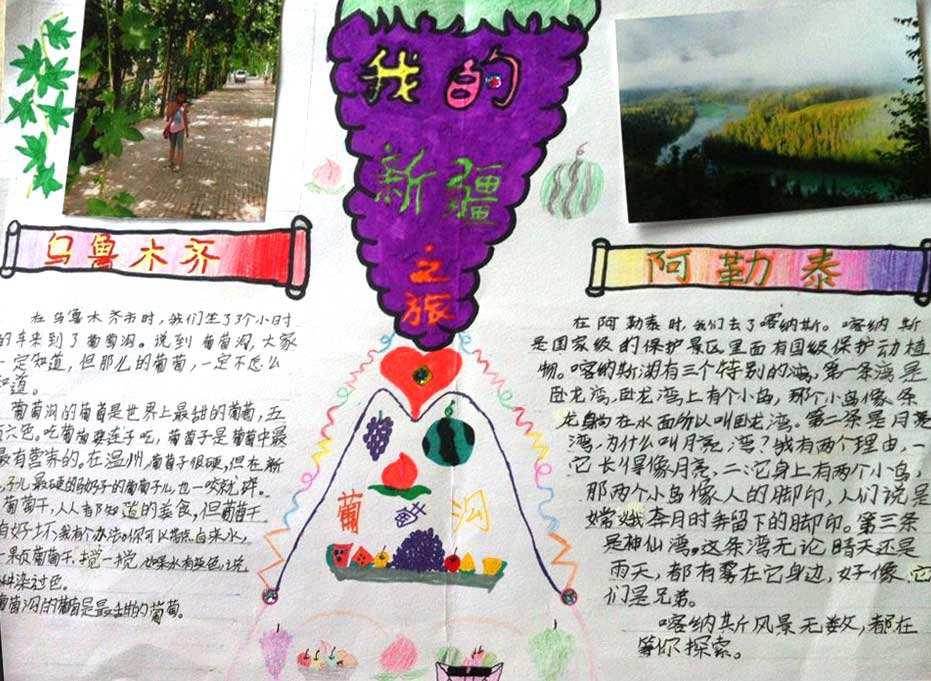 我的
新疆
之旅
乌鲁木齐
在乌鲁木齐市时，我们坐了3个小时
的车来到了葡萄沟。说到葡萄沟，大家
一定知道，但那儿的葡萄，一定不怎么
知道。
葡萄沟的葡萄是世界上最甜的葡萄，五
颜六色。吃葡萄要连子吃，葡萄子是葡萄中最
最有营养的。在温州，葡萄子很硬，但在新
子儿最硬的葡萄子儿也一咬就碎。
葡萄干，人人都知道的美食，但葡萄干
有好坏，我有个办法，你可以带点自来水，
果反葡萄干，搅一搅，如果水有灰色，说
染过色。
葡萄沟的葡萄是最甜的葡萄。
葡
沟
阿勒泰
在阿勒泰时，我们去了喀纳斯。喀纳斯
是国家级的保护景区，里面有国级保护动植
物。喀纳斯湖有三个特别的湾，第一条湾是
卧龙湾，卧龙湾上有个小岛，那个小岛像条
龙躺在水面所以叫卧龙湾。第二条是月亮
湾，为什么叫月亮湾？我有两个理由，一
它长得像月亮，二：它身上有两个小岛，
那两个小岛像人的脚印，人们说是
嫦娥奔月时留下的脚印。第三条
是神仙湾。这条湾无论晴天还是
雨天，都有雾在它身边，好像它
们是兄弟。
喀纳斯风景无数，都在
等你探索。